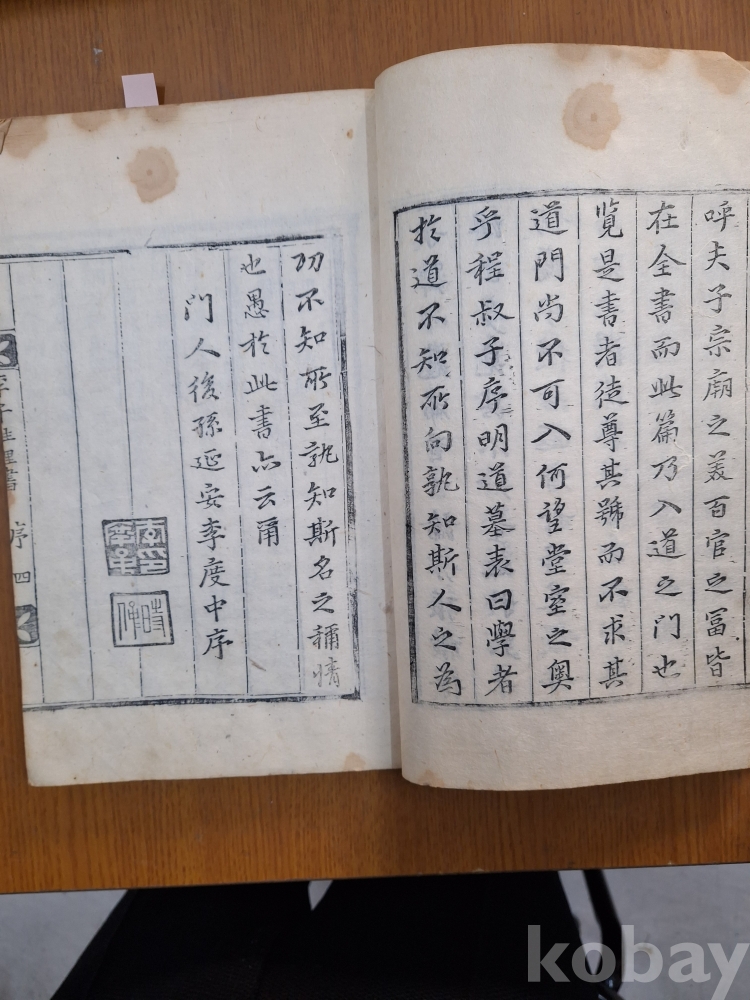 呼夫子宗廟之美百官之冨皆
在全書而此篇乃入道之門也
覧是書者徒尊其號而不求其
道門尚不可入何望堂室之奧
乎程叔子序明道墓表曰學者
於道不知所向孰知斯人之為
功不知所至孰知斯名之稱情
也愚於此書亦云爾
門人後孫延安李度中序
時偁
序 四
kobay